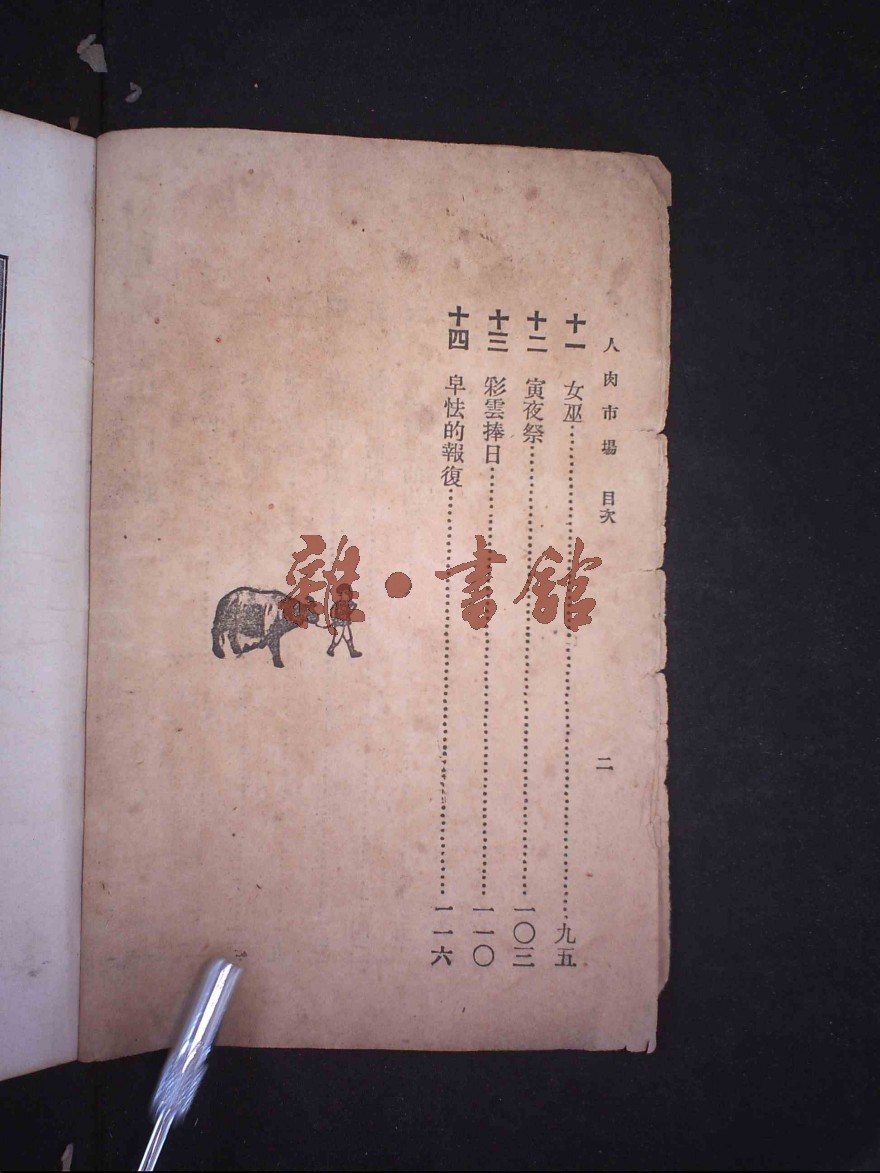 人肉市場 目次 二
十一 女巫 九五
十二 寅夜祭 一〇三
十三 彩雲捧日 一一〇
十四 卑怯的報復 一一六
雜·書館